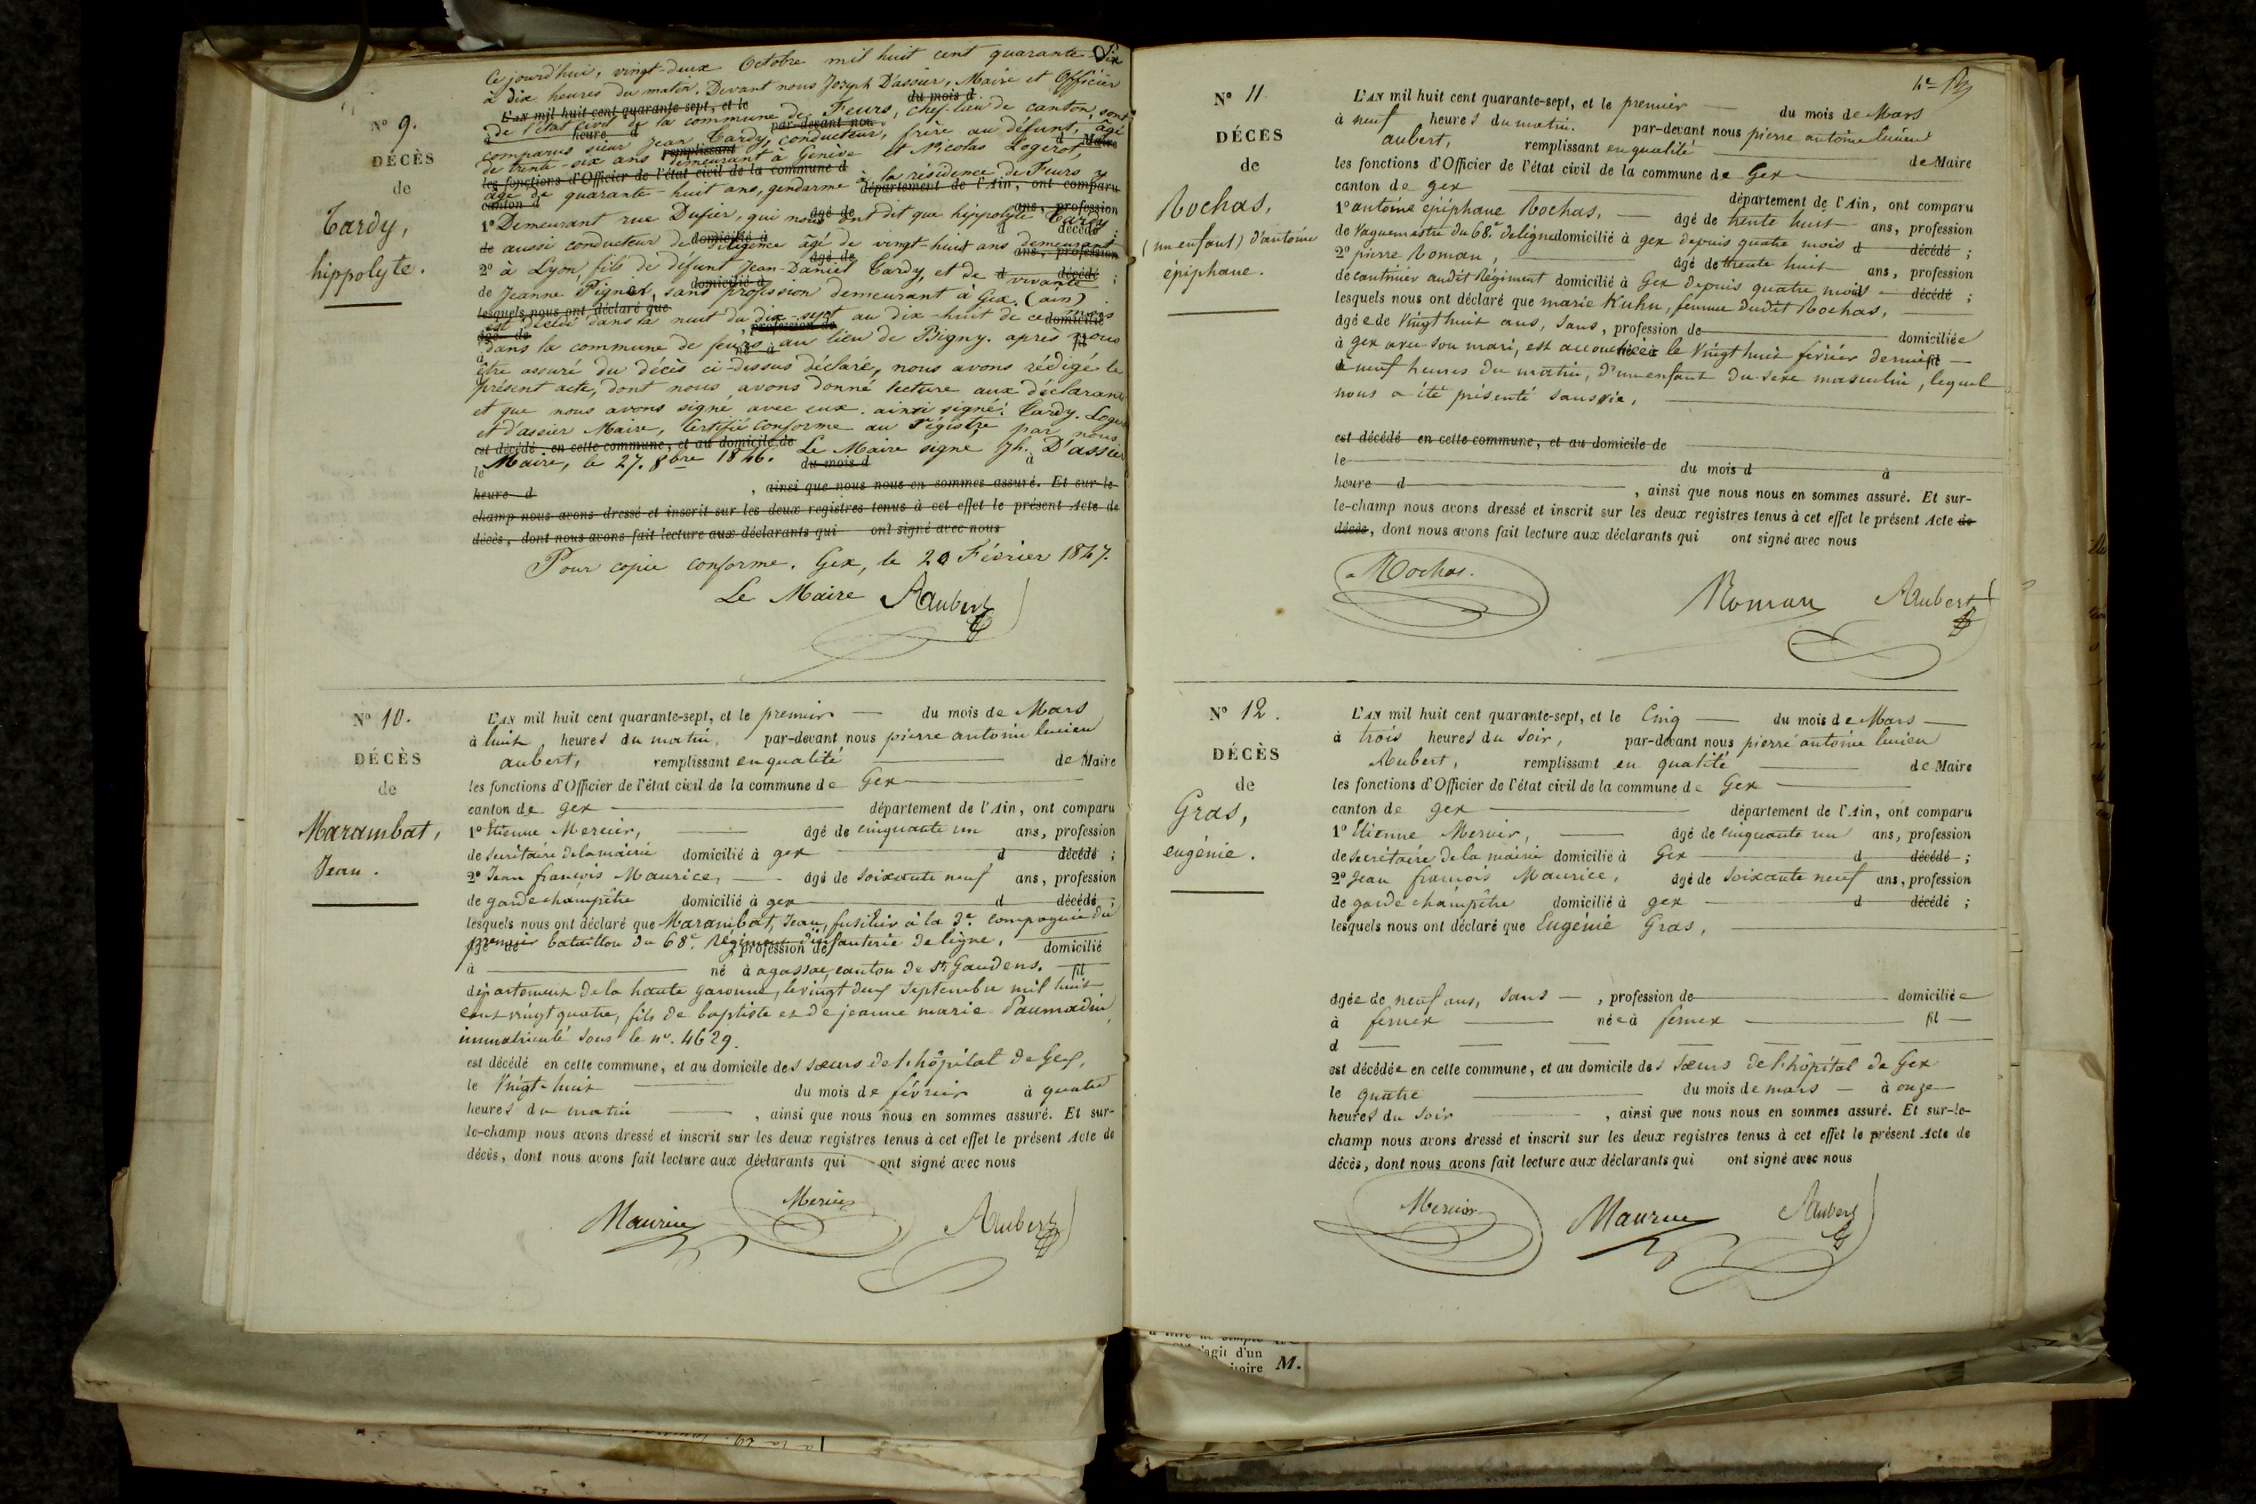 Nº 9.
DÉCÈS
de
Tardy,
hippolyte.
Ce jourd'hui, vingt-deux Octobre mil huit cent quarante-six
à dix heures du matin. Devant nous Joseph D'assier, Maire et Officier
L'AN mil huit cent quarante-sept, et le du mois d
de l'état civil de la commune de Feurs, chef-lieu de canton, sont
à heure d par-devant nous
comparus sieur Jean Tardy, conducteur, frère au défunt, âgé
remplissant d Maire
de trente-six ans demeurant à Genève et Nicolas Logerot,
les fonctions d'Officier de l'état civil de la commune d
âgé de quarante-huit ans, gendarme à la résidence de Feurs y
canton d département de l'Ain, ont comparu
1º Demeurant rue Dufier, qui nous ont dit que hippolyte Tardy
âgé de ans, profession
de aussi conducteur de diligence âgé de vingt-huit ans demeurant
domicilié à d décédé ;
2º à Lyon, fils de défunt Jean-Daniel Tardy, et de vivante
âgé de ans, profession
de Jeanne Pignet, sans profession demeurant à Gex. (ain)
domicilié à d décédé ;
lesquels nous ont déclaré que
est décédé dans la nuit du dix-sept au dix-huit de ce mois
âgé de profession de domicilié
dans la commune de feurs au lieu de Bigny. après nous
à né à fil
être assuré du décès ci-dessus déclaré, nous avons rédigé le
présent acte, dont nous avons donné lecture aux déclarans
et que nous avons signé avec eux. ainsi signé: Tardy. Loge
et d'assier Maire, Certifié Conforme au régistre par nous
est décédé en cette commune, et au domicile de
Maire, le 27. 8bre 1846. Le Maire signé Jh. D'assier
le du mois d à
heure d , ainsi que nous nous en sommes assuré. Et sur-le-
champ nous avons dressé et inscrit sur les deux registres tenus à cet effet le présent Acte de
décès, dont nous avons fait lecture aux déclarants qui ont signé avec nous
Pour copie conforme. Gex, le 20 Février 1847.
Le Maire Aubert
Nº 10.
DÉCÈS
de
Marambat,
Jean.
L'AN mil huit cent quarante-sept, et le premier du mois de Mars
à huit heures du matin, par-devant nous pierre antoine lucien
aubert, remplissant en qualité de Maire
les fonctions d'Officier de l'état civil de la commune de Gex
canton de gex département de l'Ain, ont comparu
1º Etienne Mercier, âgé de cinquante un ans, profession
de secrétaire de la mairie domicilié à gex d décédé ;
2º Jean françois Maurice, âgé de soixante neuf ans, profession
de garde champêtre domicilié à gex d décédé ;
lesquels nous ont déclaré que Marambat, Jean, fusilier à la 3e. compagnie du
âgé de premier bataillon du 68e. Régiment d'infanterie de ligne, profession de domicilié
à né à agassac, canton de St. Gaudens, fil
département de la haute garonne, le vingt deux Septembre mil huit
cent vingt quatre, fils de baptiste et de jeanne marie Paumadin,
immatriculé sous le nº. 4629.
est décédé en cette commune, et au domicile des sœurs de l'hôpital de Gex,
le vingt-huit du mois de février à quatre
heures du matin , ainsi que nous nous en sommes assuré. Et sur-
le-champ nous avons dressé et inscrit sur les deux registres tenus à cet effet le présent Acte de
décès, dont nous avons fait lecture aux déclarants qui ont signé avec nous
Maurice Mercier Aubert
Nº 11
DÉCÈS
de
Rochas,
(un enfant) d'antoine
épiphane.
L'AN mil huit cent quarante-sept, et le premier du mois de Mars
à neuf heures du matin. par-devant nous pierre antoine lucien
aubert, remplissant en qualité de Maire
les fonctions d'Officier de l'état civil de la commune de Gex
canton de gex département de l'Ain, ont comparu
1º antoine épiphane Rochas, âgé de trente huit ans, profession
de vaguemestre du 68e. de ligne domicilié à gex depuis quatre mois d décédé ;
2º pierre Roman, âgé de trente huit ans, profession
de cantinier audit Régiment domicilié à Gex depuis quatre mois d décédé ;
lesquels nous ont déclaré que marie Kuhn, femme dudit Rochas,
âgée de vingt huit ans, sans, profession de domiciliée
à gex avec son mari, est accouchée le vingt huit février dernier
à neuf heures du matin, d'un enfant du sexe masculin, lequel
nous a été présenté sans vie,
est décédé en cette commune, et au domicile de
le du mois d à
heure d , ainsi que nous nous en sommes assuré. Et sur-
le-champ nous avons dressé et inscrit sur les deux registres tenus à cet effet le présent Acte de
décès, dont nous avons fait lecture aux déclarants qui ont signé avec nous
Rochas. Roman Aubert
Nº 12.
DÉCÈS
de
Gras,
eugénie.
L'AN mil huit cent quarante-sept, et le Cinq du mois de Mars
à trois heures du soir, par-devant nous pierre antoine lucien
Aubert, remplissant en qualité de Maire
les fonctions d'Officier de l'état civil de la commune de Gex
canton de gex département de l'Ain, ont comparu
1º Etienne Mercier, âgé de cinquante un ans, profession
de secrétaire de la mairie domicilié à Gex d décédé ;
2º Jean françois Maurice, âgé de soixante neuf ans, profession
de garde champêtre domicilié à gex d décédé ;
lesquels nous ont déclaré que Eugénie Gras,
âgée de neuf ans, sans , profession de domiciliée
à fernex née à fernex fil
d
est décédée en cette commune, et au domicile des sœurs de l'hôpital de Gex
le quatre du mois de mars à onze
heures du soir , ainsi que nous nous en sommes assuré. Et sur-le-
champ nous avons dressé et inscrit sur les deux registres tenus à cet effet le présent Acte de
décès, dont nous avons fait lecture aux déclarants qui ont signé avec nous
Mercier Maurice Aubert
agit d'un
M.